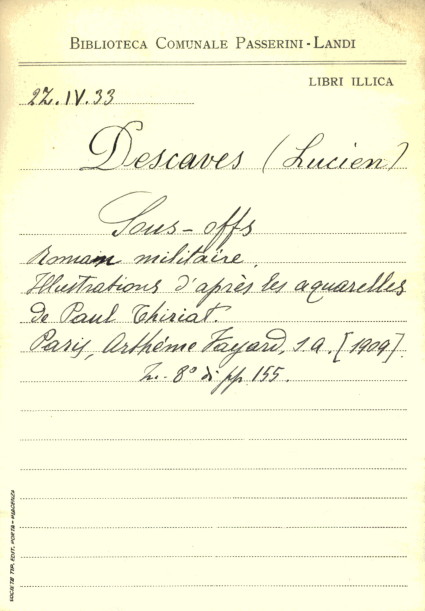 BIBLIOTECA COMUNALE PASSERINI-LANDI
LIBRI ILLICA
2Z.IV.33
Descaves (Lucien)
Sous-offs
Roman militaire.
Illustrations d'après les aquarelles
de Paul Thiriat.
Paris, Arthème Fayard, s.a. [1909]
Z. 8° di pp 155.
SOCIETÀ TIP. EDIT. PORTA - PIACENZA